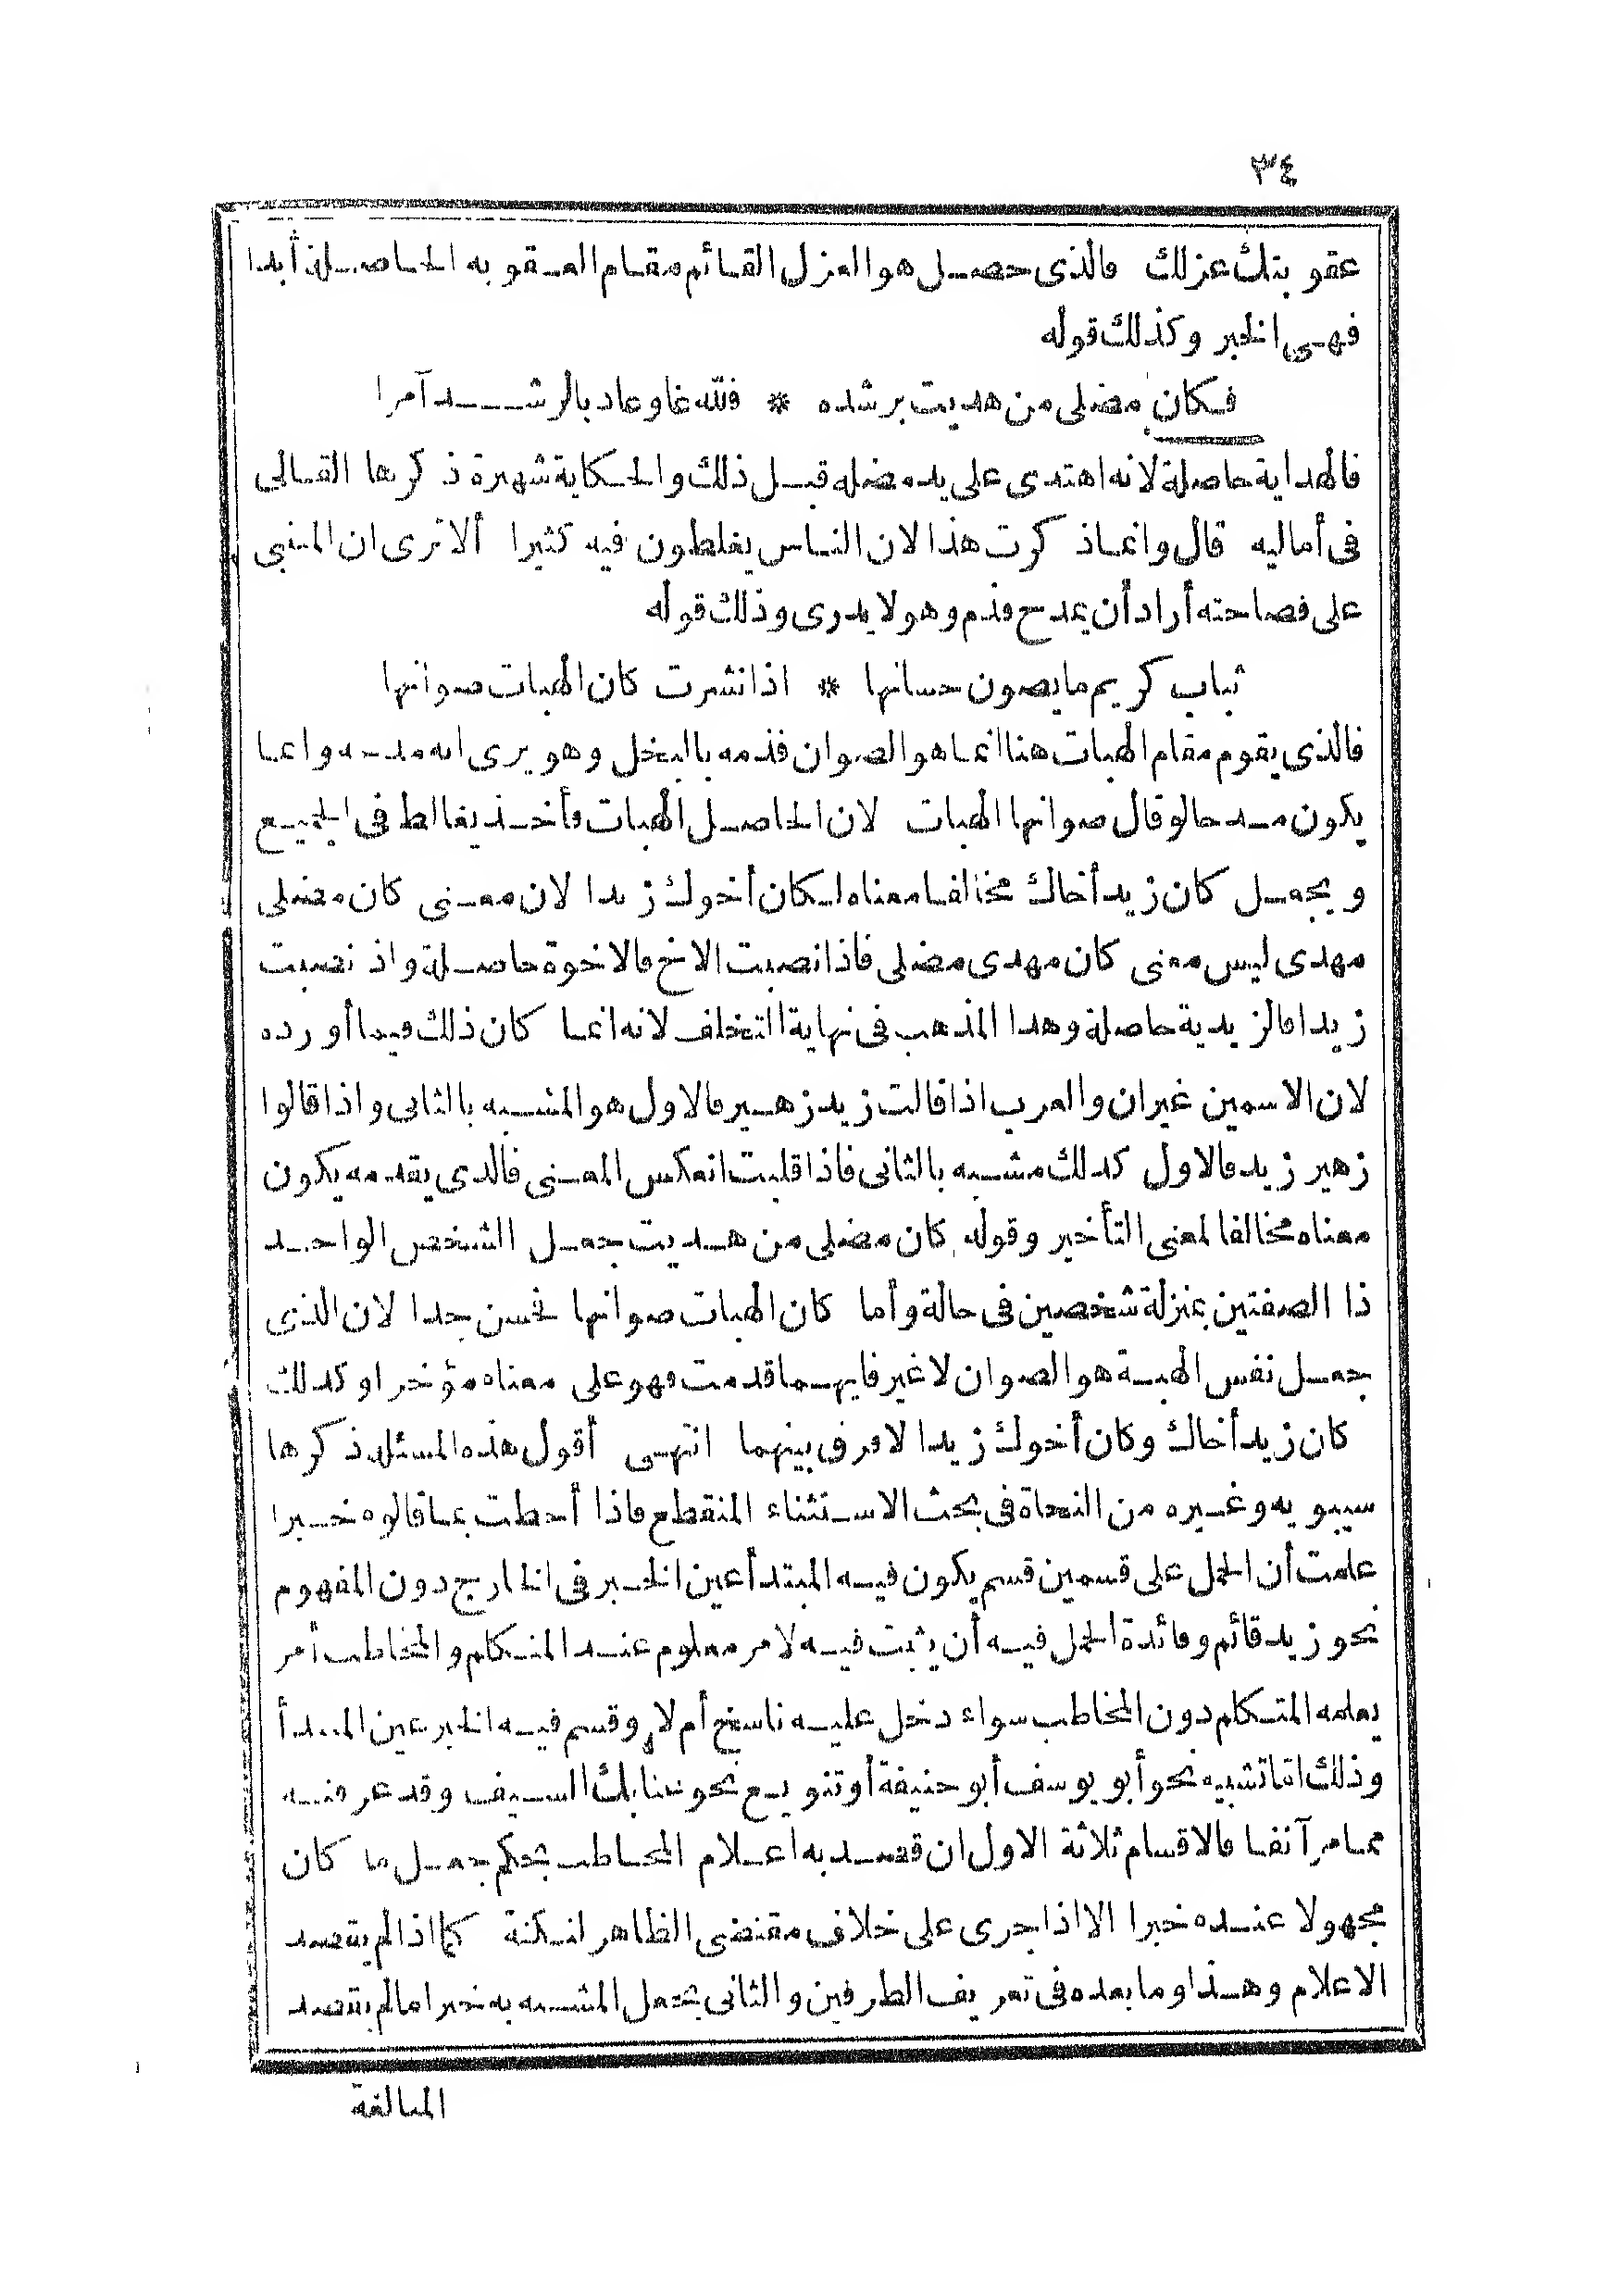 ٣٤
عقوبتك عزلك فالذى حصل هو العزل القائم مقام العقوبه الحاصلة أبدا
فهى الخبر وكذلك قوله
فكان مضلى من هديت برشده * فلله غاو عاد بالرشد آمرا
فالهداية حاصلة لانه اهتدى على يد مضله قبل ذلك والحكاية شهيرة ذكرها القالى
فى أماليه قال وانما ذكرت هذا لان الناس يغلطون فيه كثيرا ألا ترى ان المتنبى
على فصاحته أراد أن يمدح فذم وهو لا يدرى وذلك قوله
ثياب كريم ما يصون حسانها * اذا نشرت كان الهبات صوانها
فالذى يقوم مقام الهبات هنا انما هو الصوان فذمه بالبخل وهو يرى انه مدحه وانما
يكون مدحا لو قال صوانها الهبات لان الحاصل الهبات فأخذ يغالط فى الجميع
ويجعل كان زيد أخاك مخالفا معناه لكان أخوك زيدا لان معنى كان مضلى
مهدى ليس معنى كان مهدى مضلى فاذا نصبت الاخ فالاخوة حاصلة واذ نصبت
زيدا فالزيدية حاصلة وهذا المذهب فى نهاية التخلف لانه انما كان ذلك فيما أورده
لان الاسمين غيران والعرب اذا قالت زيد زهير فالاول هو المشبه بالثانى واذا قالوا
زهير زيد فالاول كذلك مشبه بالثانى فاذا قلبت انعكس المعنى فالذى يقدمه يكون
معناه مخالفا لمعنى التأخير وقوله كان مضلى من هديت جعل الشخص الواحد
ذا الصفتين بمنزلة شخصين فى حالة وأما كان الهبات صوانها فحسن جدا لان الذى
جعل نفس الهبة هو الصوان لا غير فايهما قدمت فهو على معناه مؤخرا وكذلك
كان زيد أخاك وكان أخوك زيدا لا فرق بينهما انتهى أقول هذه المسئلة ذكرها
سيبويه وغيره من النحاة فى بحث الاستثناء المنقطع فاذا أحطت بما قالوه خبرا
علمت أن الحمل على قسمين قسم يكون فيه المبتدأ عين الخبر فى الخارج دون المفهوم
نحو زيد قائم وفائدة الحمل فيه أن يثبت فيه لامر معلوم عند المتكلم والمخاطب أمر
يعلمه المتكلم دون المخاطب سواء دخل عليه ناسخ أم لا وقسم فيه الخبر عين المبتدأ
وذلك اما تشبيه نحو أبو يوسف أبو حنيفة أو تنويع نحو عتابك السيف وقد عرفته
مما مر آنفا فالاقسام ثلاثة الاول ان قصد به اعلام المخاطب بحكم جعل ما كان
مجهولا عنده خبرا الا اذا جرى على خلاف مقتضى الظاهر لنكتة كما اذا لم يقصد
الاعلام وهذا وما بعده فى تعريف الطرفين والثانى يجعل المشبه به خبرا ما لم يقصد
المبالغة